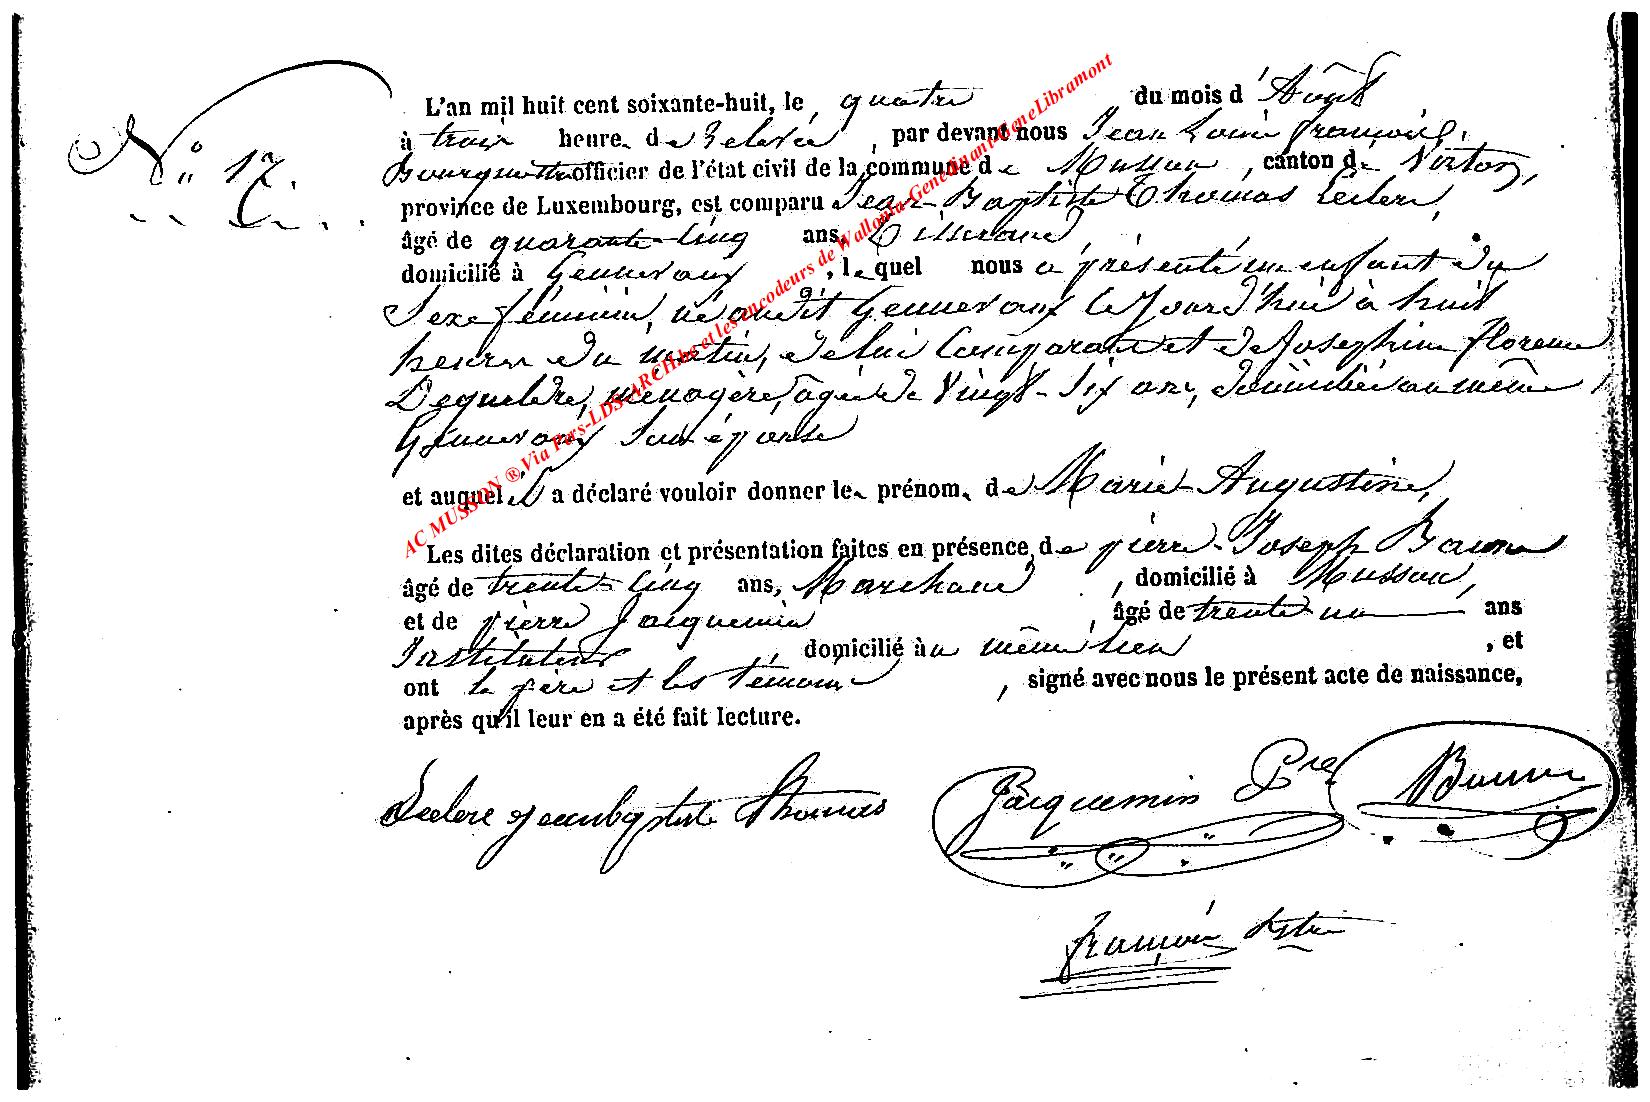 N° 17.
L'an mil huit cent soixante-huit, le quatre du mois d'Août
à trois heures de relevée, par devant nous Jean Louis François,
Bourgmestre officier de l'état civil de la commune de Musson, canton de Virton,
province de Luxembourg, est comparu Jean-Baptiste Thomas Leclere,
âgé de quarante-cinq ans, Tisserand
domicilié à Gennevaux, lequel nous a présenté un enfant du
Sexe féminin, né audit Gennevaux ce jourd'hui à huit
heures du matin, de lui Comparant et de Josephine florence
menagère, agée de Vingt-Six ans, domiciliée au même
Gennevaux Son épouse
et auquel il a déclaré vouloir donner les prénoms de Marie-Augustine,
Les dites déclaration et présentation faites en présence de pierre-Joseph
âgé de trente-cinq ans, Marchand, domicilié à Musson,
et de pierre Jacquemin, âgé de trente-un ans
Instituteur, domicilié au même lieu, et
ont le père et les témoins, signé avec nous le présent acte de naissance,
après qu'il leur en a été fait lecture.
Leclere jeanbaptiste Thomas Jacquemin Pre
françois
AC MUSSON ® Via Pars-LDS-ARCH.be et les encodeurs de Wallonia-Genedinant-GeneLibramont